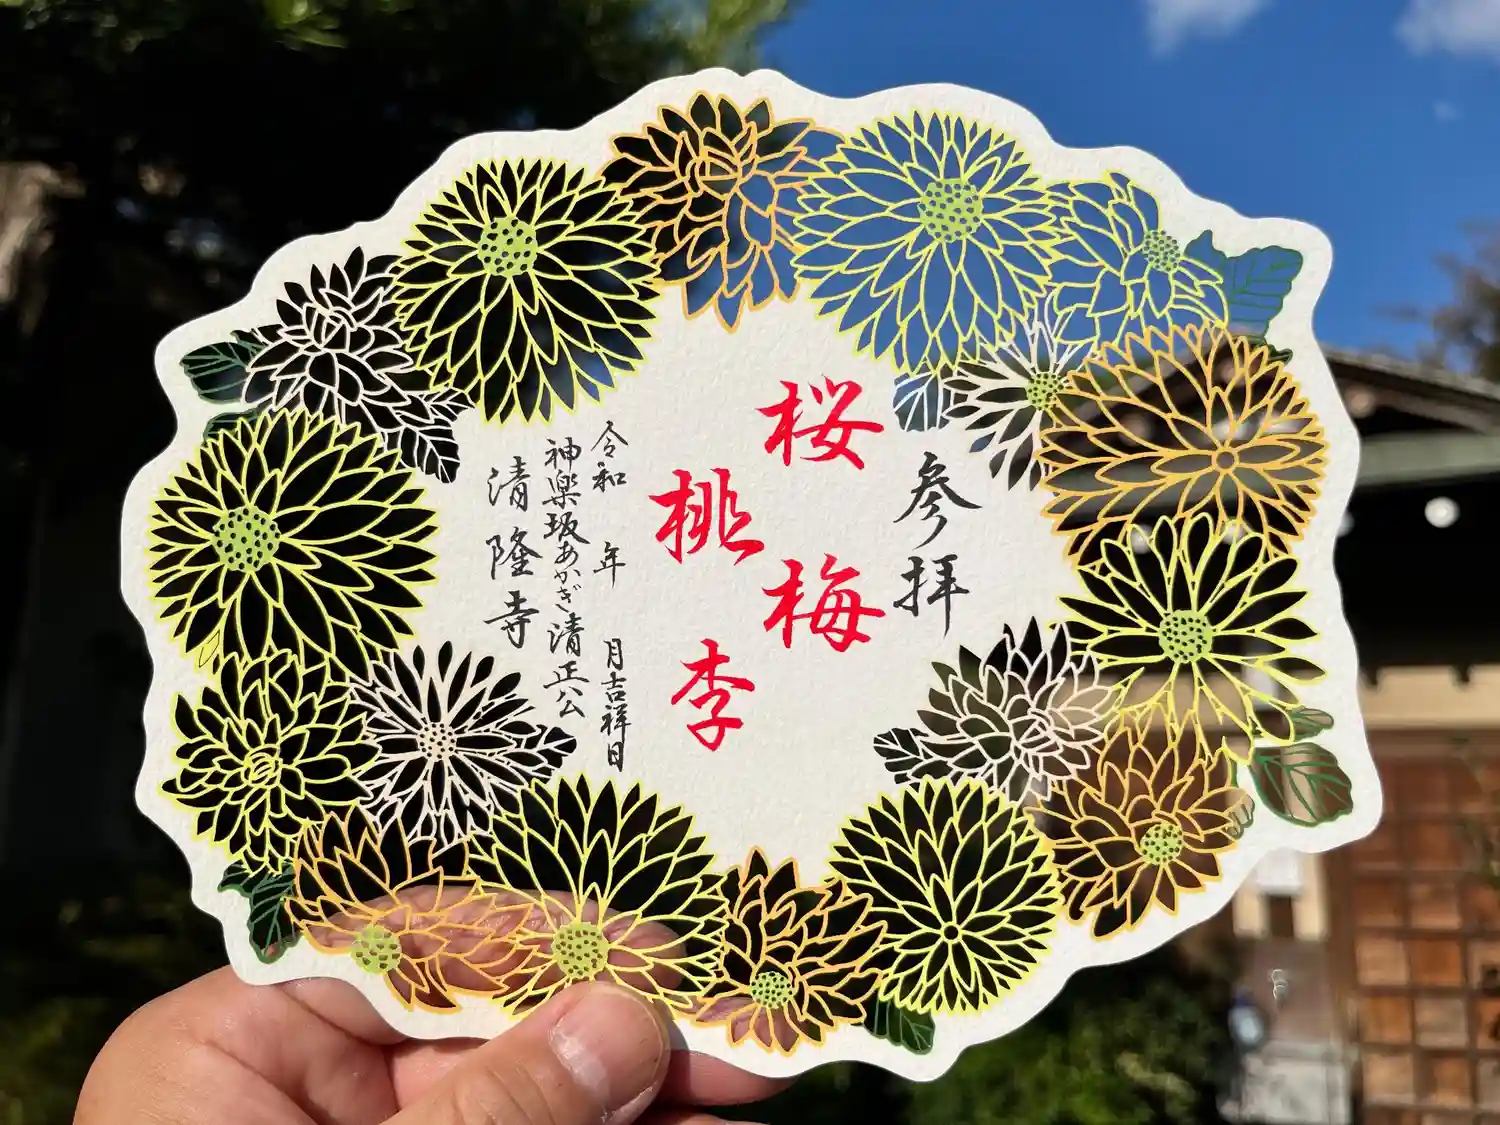 参拝
桜梅
桃李
令和 年 月吉祥日
神楽坂あかぎ清正公
清隆寺